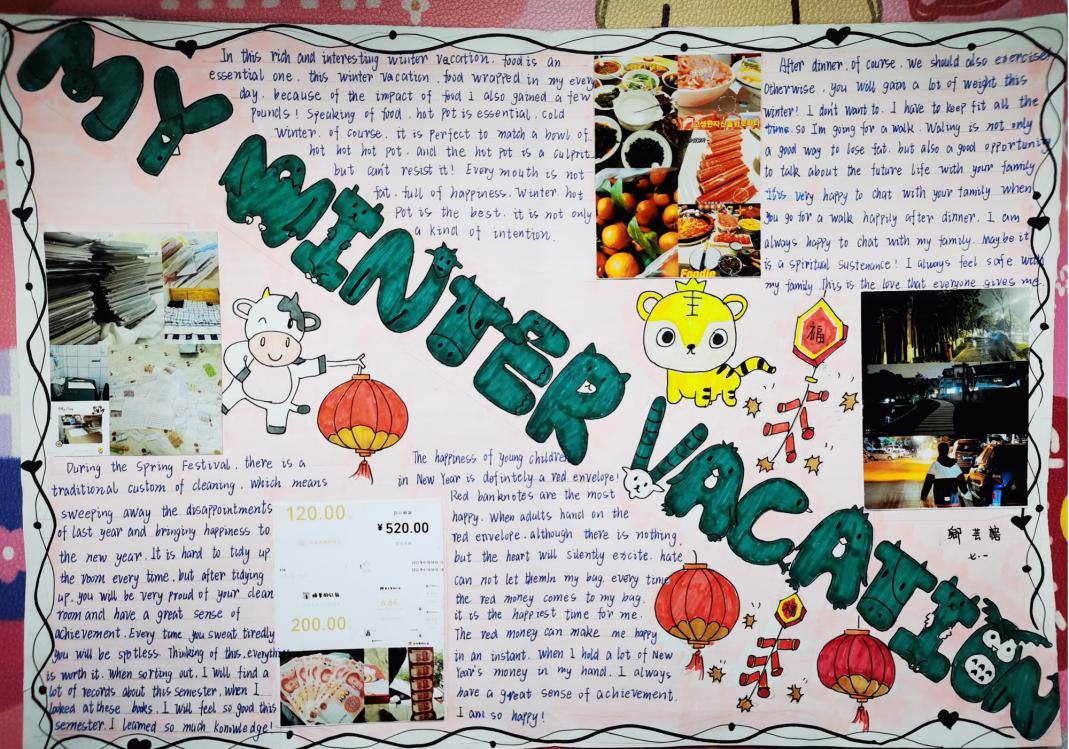 MY WINTER VACATION
In this rich and interesting winter vacation. food is an
essential one. this winter vacation. food wrapped in my every
day. because of the impact of food I also gained a few
pounds! Speaking of food. hot pot is essential. cold
winter. of course. it is perfect to match a bowl of
hot hot hot pot. and the hot pot is a culprit.
but can't resist it! Every mouth is not
fat. full of happiness. Winter hot
pot is the best. it is not only
a kind of intention.
Foodie
After dinner. of course. we should also exercise!
Otherwise. you will gain a lot of weight this
winter! I don't want to. I have to keep fit all the
time. so I'm going for a walk. Waling is not only
a good way to lose fat. but also a good opportunity
to talk about the future life with your family
It is very happy to chat with your family when
you go for a walk happily after dinner. I am
always happy to chat with my family. Maybe it
is a spiritual sustenance! I always feel safe with
my family This is the love that everyone gives me.
福
During the Spring Festival. there is a
traditional custom of cleaning. which means
sweeping away the disappointments
of last year and bringing happiness to
the new year. It is hard to tidy up
the room every time. but after tidying
up. you will be very proud of your clean
room and have a great sense of
achievement. Every time you sweat tiredly
you will be spotless. Thinking of this. everything
is worth it. when sorting out. I will find a
lot of records about this semester. when I
looked at these books. I will feel so good this
semester. I learned so much konwledge!
120.00
¥520.00
200.00
The happiness of young children
in New Year is definitely a red envelope!
Red banknotes are the most
happy. When adults hand on the
red envelope. although there is nothing.
but the heart will silently excite. hate
can not let themIn my bag. every time
the red money comes to my bag.
it is the happiest time for me.
The red money can make me happy
in an instant. When I hold a lot of New
Year's money in my hand. I always
have a great sense of achievement.
I am so happy!
福
七·一